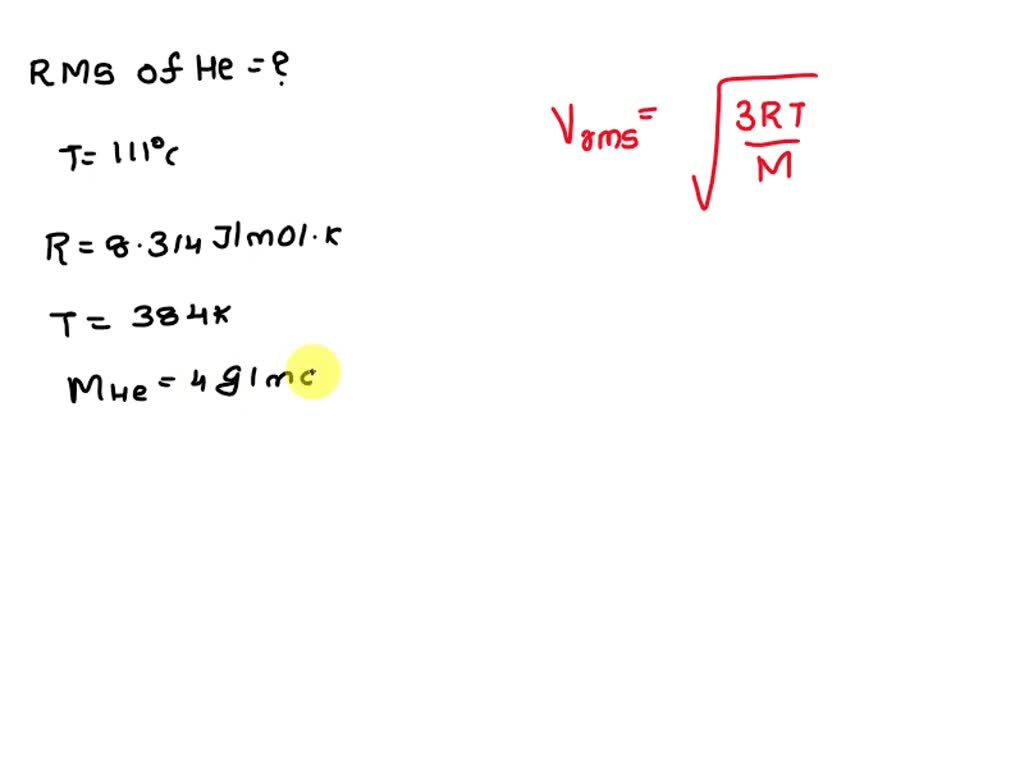 RMS of He = ?
T = 111°C
R = 8.314 J/mol.K
T = 384K
MHe = 4 g/mo
Vrms = √3RT/M